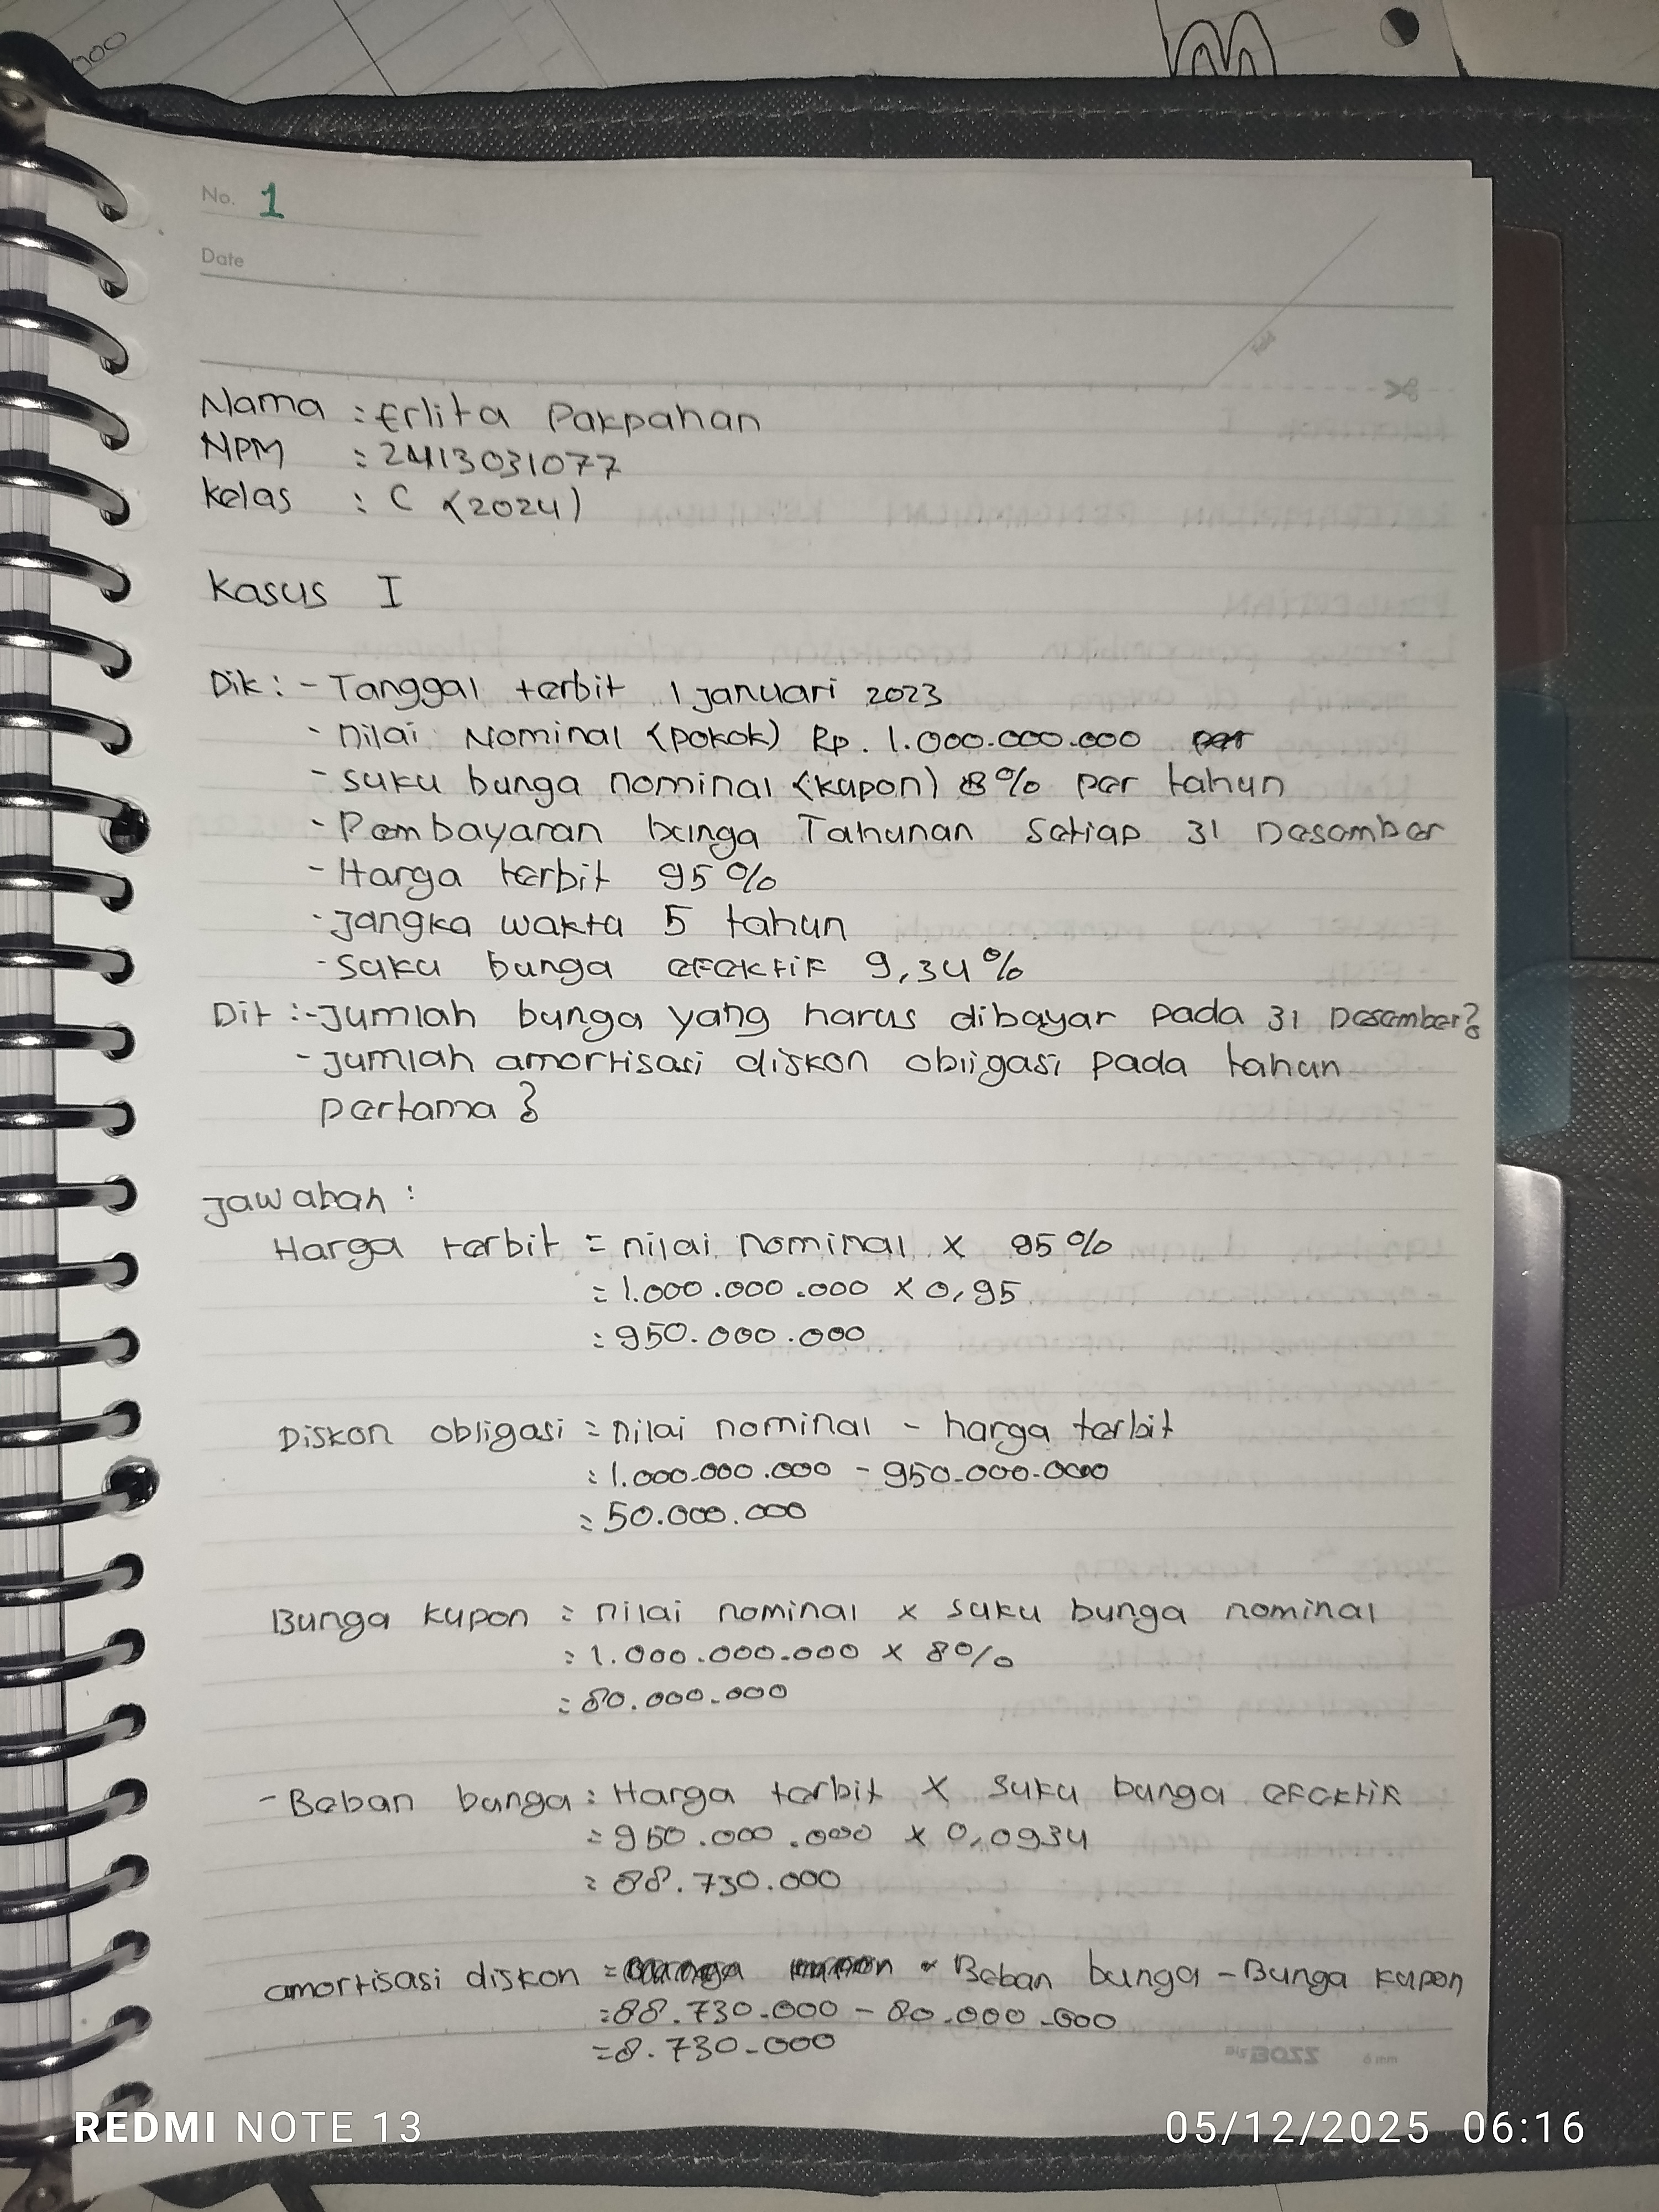 No. 1
Date
Nama : Erlita Pakpahan
NPM : 2413031077
Kelas : C (2024)
Kasus I
Dik : - Tanggal terbit 1 januari 2023
- nilai Nominal (pokok) Rp. 1.000.000.000
- suku bunga nominal (kupon) 8% per tahun
- Pembayaran bunga Tahunan Setiap 31 Desember
- Harga terbit 95%
- Jangka waktu 5 tahun
- Suku bunga efektif 9,34%
Dit : - Jumlah bunga yang harus dibayar pada 31 Desember?
- jumlah amortisasi diskon obligasi pada tahun
pertama ?
Jawaban :
Harga terbit = nilai nominal x 95%
= 1.000.000.000 x 0,95
= 950.000.000
Diskon obligasi = nilai nominal - harga terbit
= 1.000.000.000 - 950.000.000
= 50.000.000
Bunga kupon = nilai nominal x suku bunga nominal
= 1.000.000.000 x 8%
= 80.000.000
- Beban bunga = Harga terbit x suku bunga efektif
= 950.000.000 x 0,0934
= 88.730.000
amortisasi diskon = Beban bunga - Bunga kupon
= 88.730.000 - 80.000.000
= 8.730.000
REDMI NOTE 13
05/12/2025 06:16